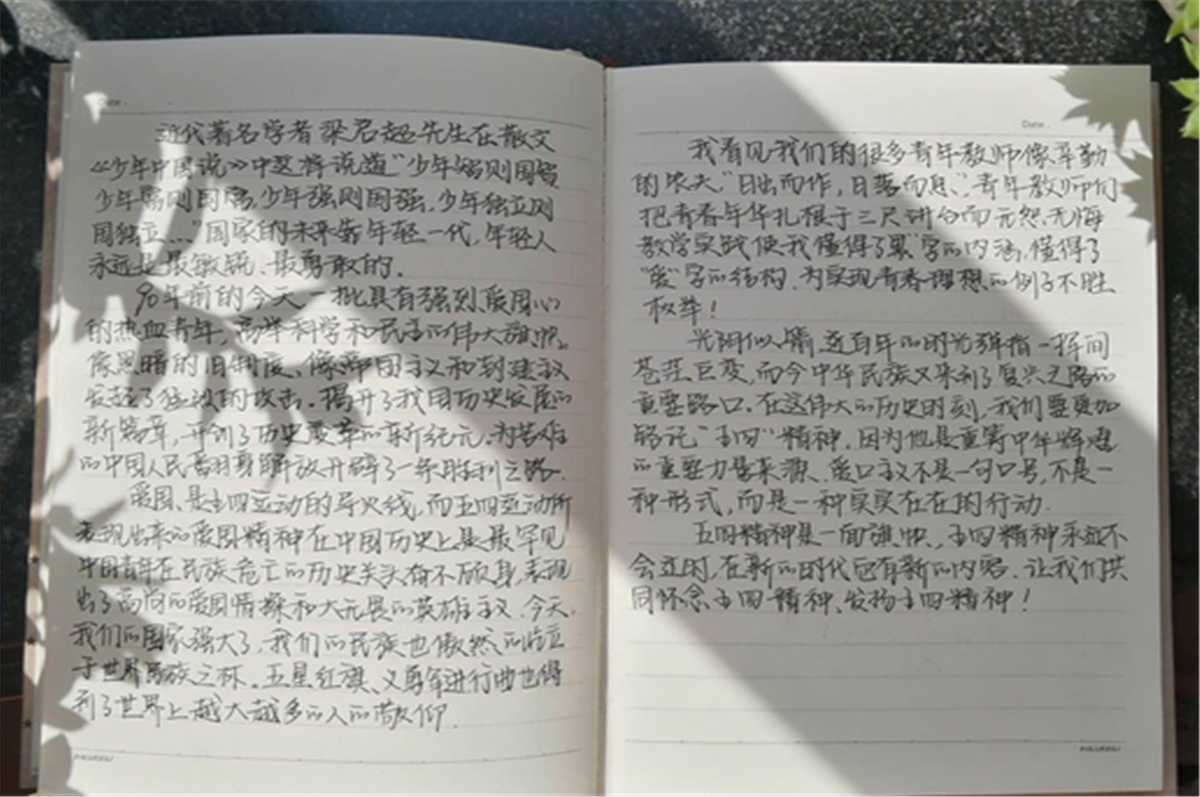 Date.
近代著名学者梁启超先生在散文
《少年中国说》中这样说道"少年智则国智
少年富则国富,少年强则国强,少年独立则
国独立..."国家的未来靠年轻一代,年轻人
永远是最敏锐、最勇敢的.
90年前的今天一批具有强烈爱国心
的热血青年,高举科学和民主的伟大旗帜,
像黑暗的旧制度、像帝国主义和封建主义
发起了猛烈的攻击.揭开了我国历史发展的
新篇章,开创了历史变革的新纪元.为苦难
的中国人民翻身解放开辟了一条胜利之路.
爱国、是五四运动的导火线,而五四运动所
表现出来的爱国精神在中国历史上是最罕见
中国青年在民族危亡的历史关头奋不顾身,表现
出了高尚的爱国情操和大无畏的英雄主义.今天,
我们的国家强大了,我们的民族也傲然的屹立
于世界民族之林.五星红旗、义勇军进行曲也得
到了世界上越大越多的人的敬仰.
Date.
我看见我们的很多青年教师像辛勤
的农夫"日出而作,日落而息、"青年教师们
把青春年华扎根于三尺讲台而无怨、无悔
教学实践使我懂得了累"字的内涵,懂得了
"爱"字的结构.为实现青春理想的例子不胜
枚举!
光阴似箭,近百年的时光弹指一挥间
苍茫巨变,而今中华民族又来到了复兴之路的
重要路口.在这伟大的历史时刻,我们要更加
铭记"五四"精神.因为他是重铸中华辉煌
的重要力量来源、爱口主义不是一句口号,不是一
种形式,而是一种实实在在的行动.
五四精神是一面旗帜.,五四精神永远不
会过时,在新的时代也有新的内容.让我们共
同怀念五四精神、发扬五四精神!